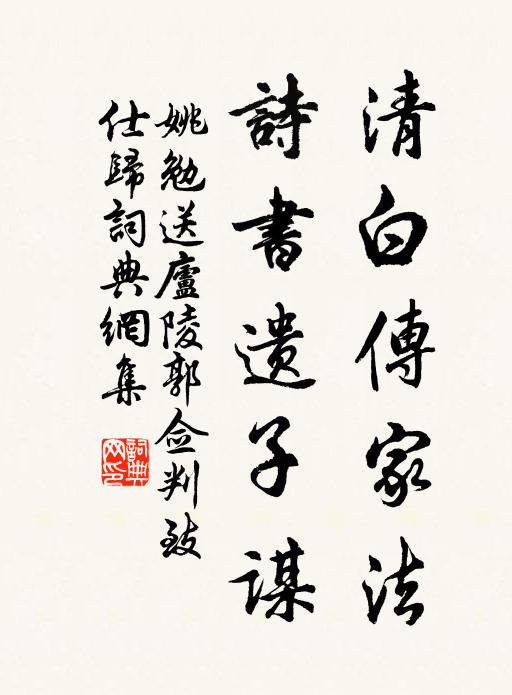 清白傳家法
詩書遺子謀
姚勉送廬陵郭僉判致
仕歸詞典網集
詞典
網印